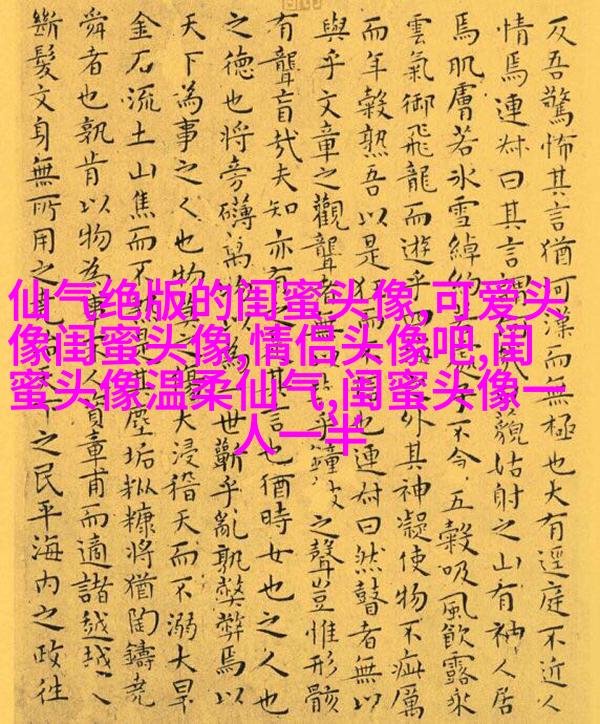 仙气绝版的闺蜜头像,可爱头
像闺蜜头像,情侣头像吧,闺
蜜头像温柔仙气,闺蜜头像一
人一半
反吾驚怖其言猶河漢而無極也大有逕庭不近人
情焉連叔曰其言謂藐姑射之山有神人居
焉肌膚若冰雪綽約子不食五穀吸風飲露乘
雲氣御飛龍而遊乎四外其神凝使物不疵厲
而年穀熟吾以是狂而不也連叔曰然瞽者無以
與乎文章之觀聾者無乎鐘之聲豈惟形骸
有聾盲哉夫知亦有之其言也猶時女也之人也
之德也將旁礴萬以為世蘄乎亂孰弊弊焉以
天下為事之人也物莫之大浸稽天而不溺大旱
金石流土山焦而不是其塵垢粃糠將猶陶鑄堯
舜者也孰肯以物為事人資章甫而適諸越越人
斷髮文身無所用之堯之民平海內之政往